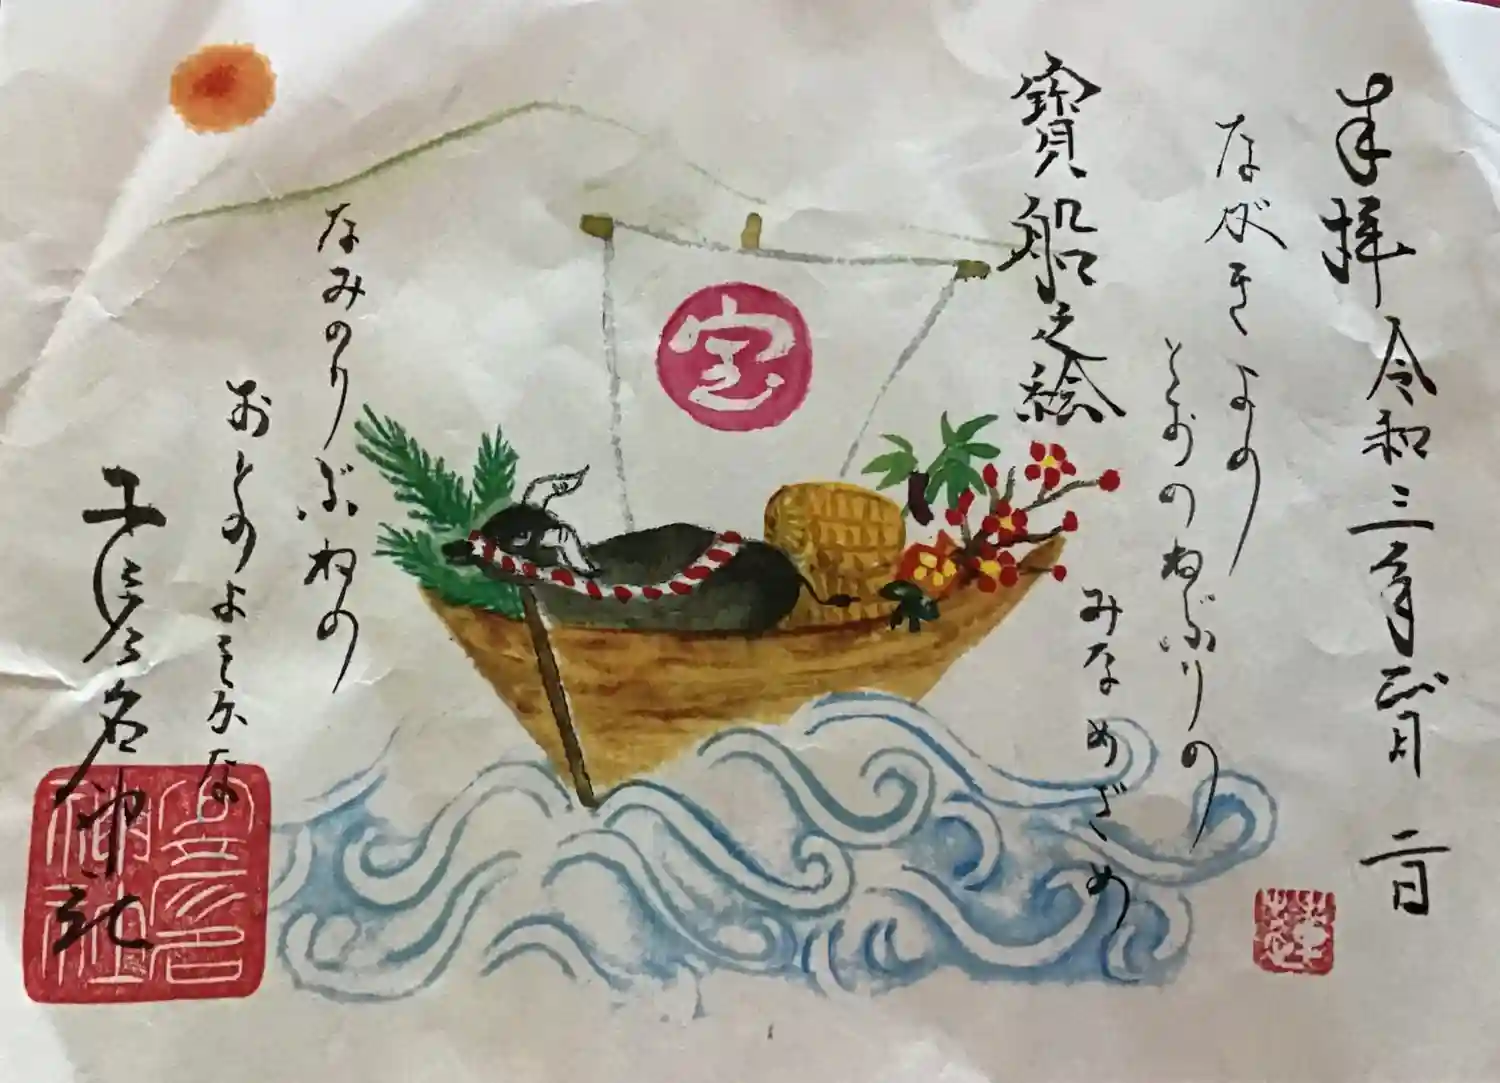 奉拝 令和三年正月 二日
ながきよの
とおのねぶりの
みなめざめ
寶船之絵
宝
なみのりぶねの
おとのよきかな
神社